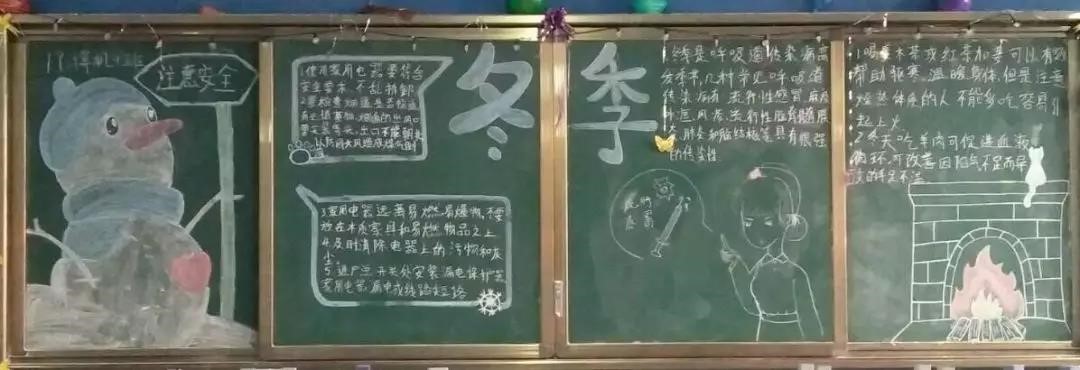 注意安全
冬季
1.使用家用电器要符合
安全要求,不乱拆卸
2.要检查烟道是否畅通
有无堵塞物
3.家用电器远离易燃易爆物,不要
放在木质家具和易燃物品之上
4.及时清除电器上的污物和灰
尘。
5.进户总开关处安装漏电保护器
家用电器漏电或线路短路
1.冬季是呼吸道传染病高
发季节,几种常见呼吸道
传染病有:流行性感冒,麻疹
的传染性
1.喝姜木茶或红茶加姜可以有效
帮助驱寒,温暖身体,但是注意
燥热体质的人不能多吃容易引
起上火
2.冬天吃羊肉可促进血液
循环,可改善因阳气不足而导
致的手足不温